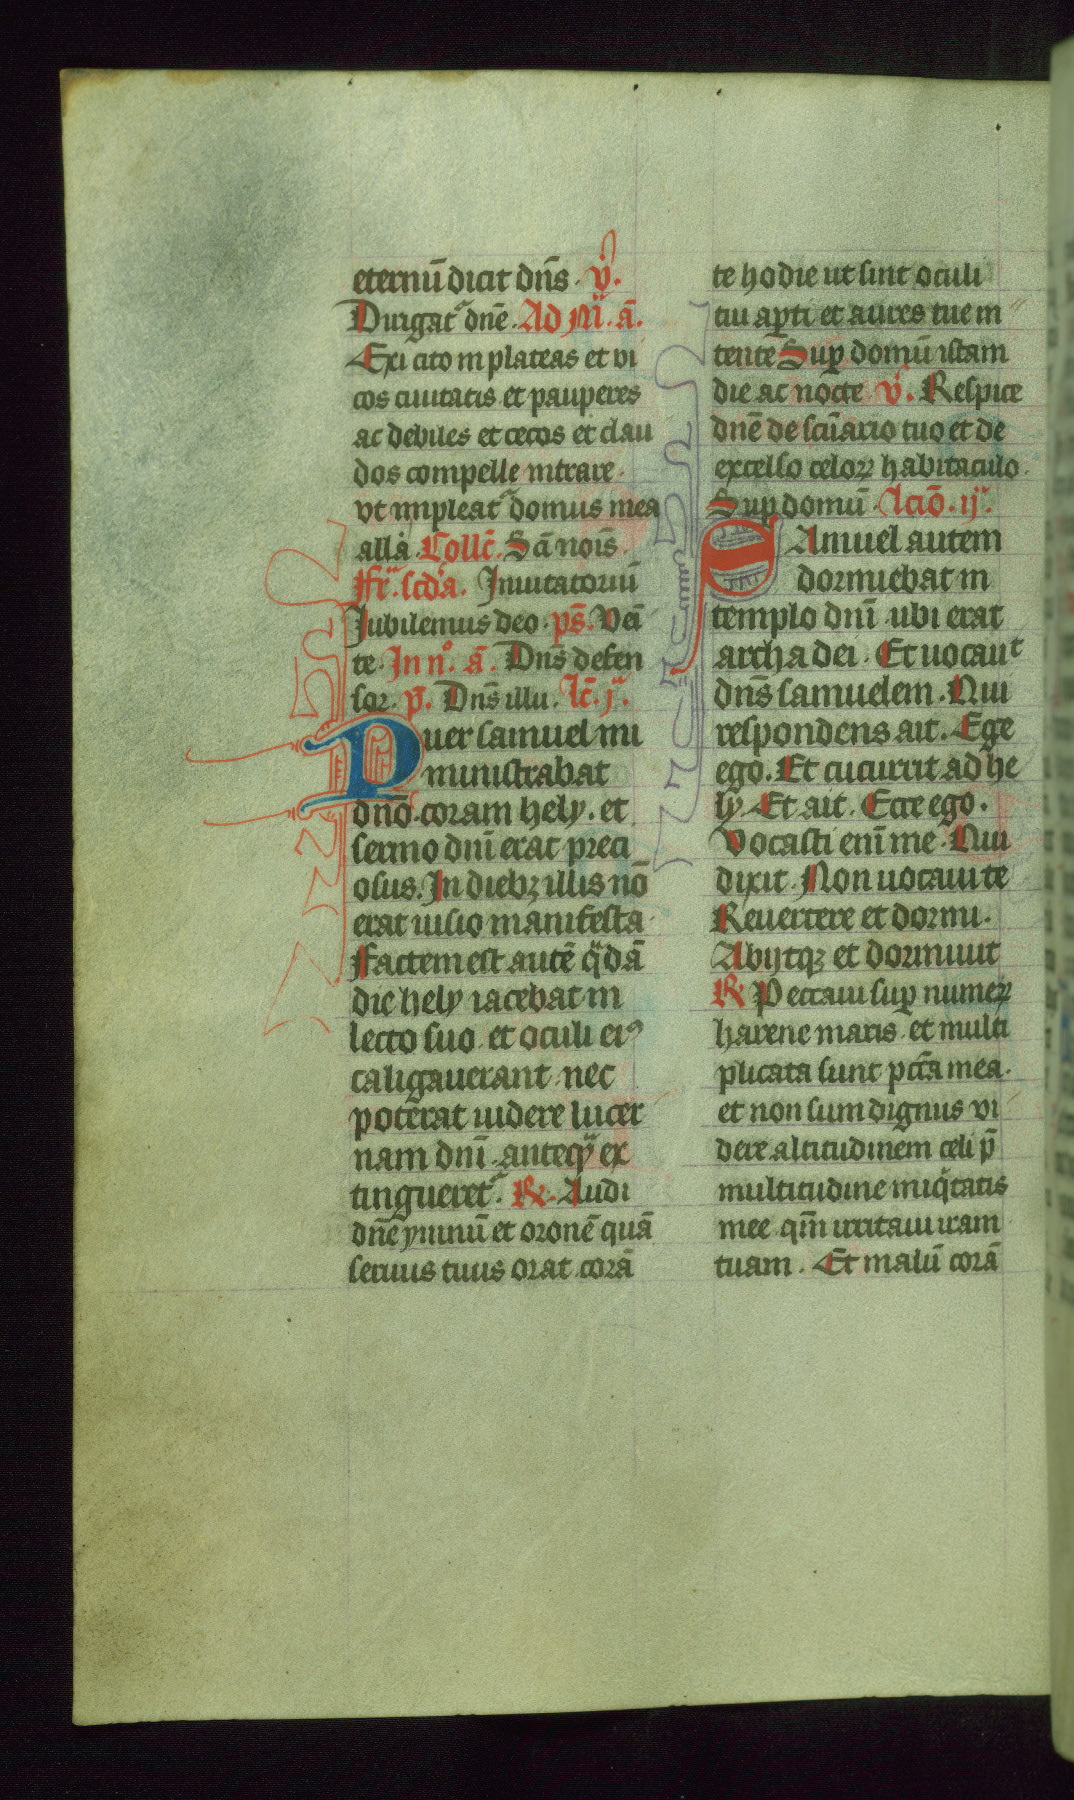 eternū dicit dn̄s. v̄.
Dirigatᷣ dn̄e. Ad M̄. ā.
Exi cito in plateas et vi
cos ciuitatis et pauperes
ac debiles et cecos et clau
dos compelle intrare.
vt impleatᷣ domus mea
alla. Collc̄. Sā nois̄.
Fr̄. scd̄a. Inuitatoriū
Jubilemus deo. ps̄. Veī
te. In n°. ā. Dns̄ defen
sor. p̄. Dn̄s illu. lc̄. j.
Puer samuel mi
ministrabat
dn̄o. coram hely. et
sermo dn̄i erat preci
osus. In diebꝫ illis nō
erat uisio manifesta.
Factem est autē qͣdā
die hely iacebat in
lecto suo. et oculi eiꝰ
caligauerant. nec
poterat uidere lucer
nam dn̄i. anteqͣ ex
tingueretᷣ. R̄. Audi
dn̄e ymnū et oronē quā
seruus tuus orat corā
te hodie ut sint oculi
tui aꝑti et aures tue in
tente Suꝑ domū istam
die ac nocte. v̄. Respice
dn̄e de scū̄ario tuo et de
excelso celoꝝ habitaculo.
Suꝑ domū. lctō. ij.
SAmuel autem
dormiebat in
templo dn̄i. ubi erat
archa dei. Et uocauᵗ
dn̄s samuelem. Qui
respondens ait. Ege
ego. Et cucurrit ad he
ly. Et ait. Ecce ego.
Vocasti enī me. Qui
dixit. Non uocaui te
Reuertere et dormi.
Abijtqꝫ et dormiuit
R̄ Peccaui suꝑ numeꝝ
harene maris. et multi
plicata sunt pctā mea.
et non sum dignus vi
dere altitudinem celi p̄
multitudine iniqͥtatis
mee qm̄ irritaui iram
tuam. Et malū corā